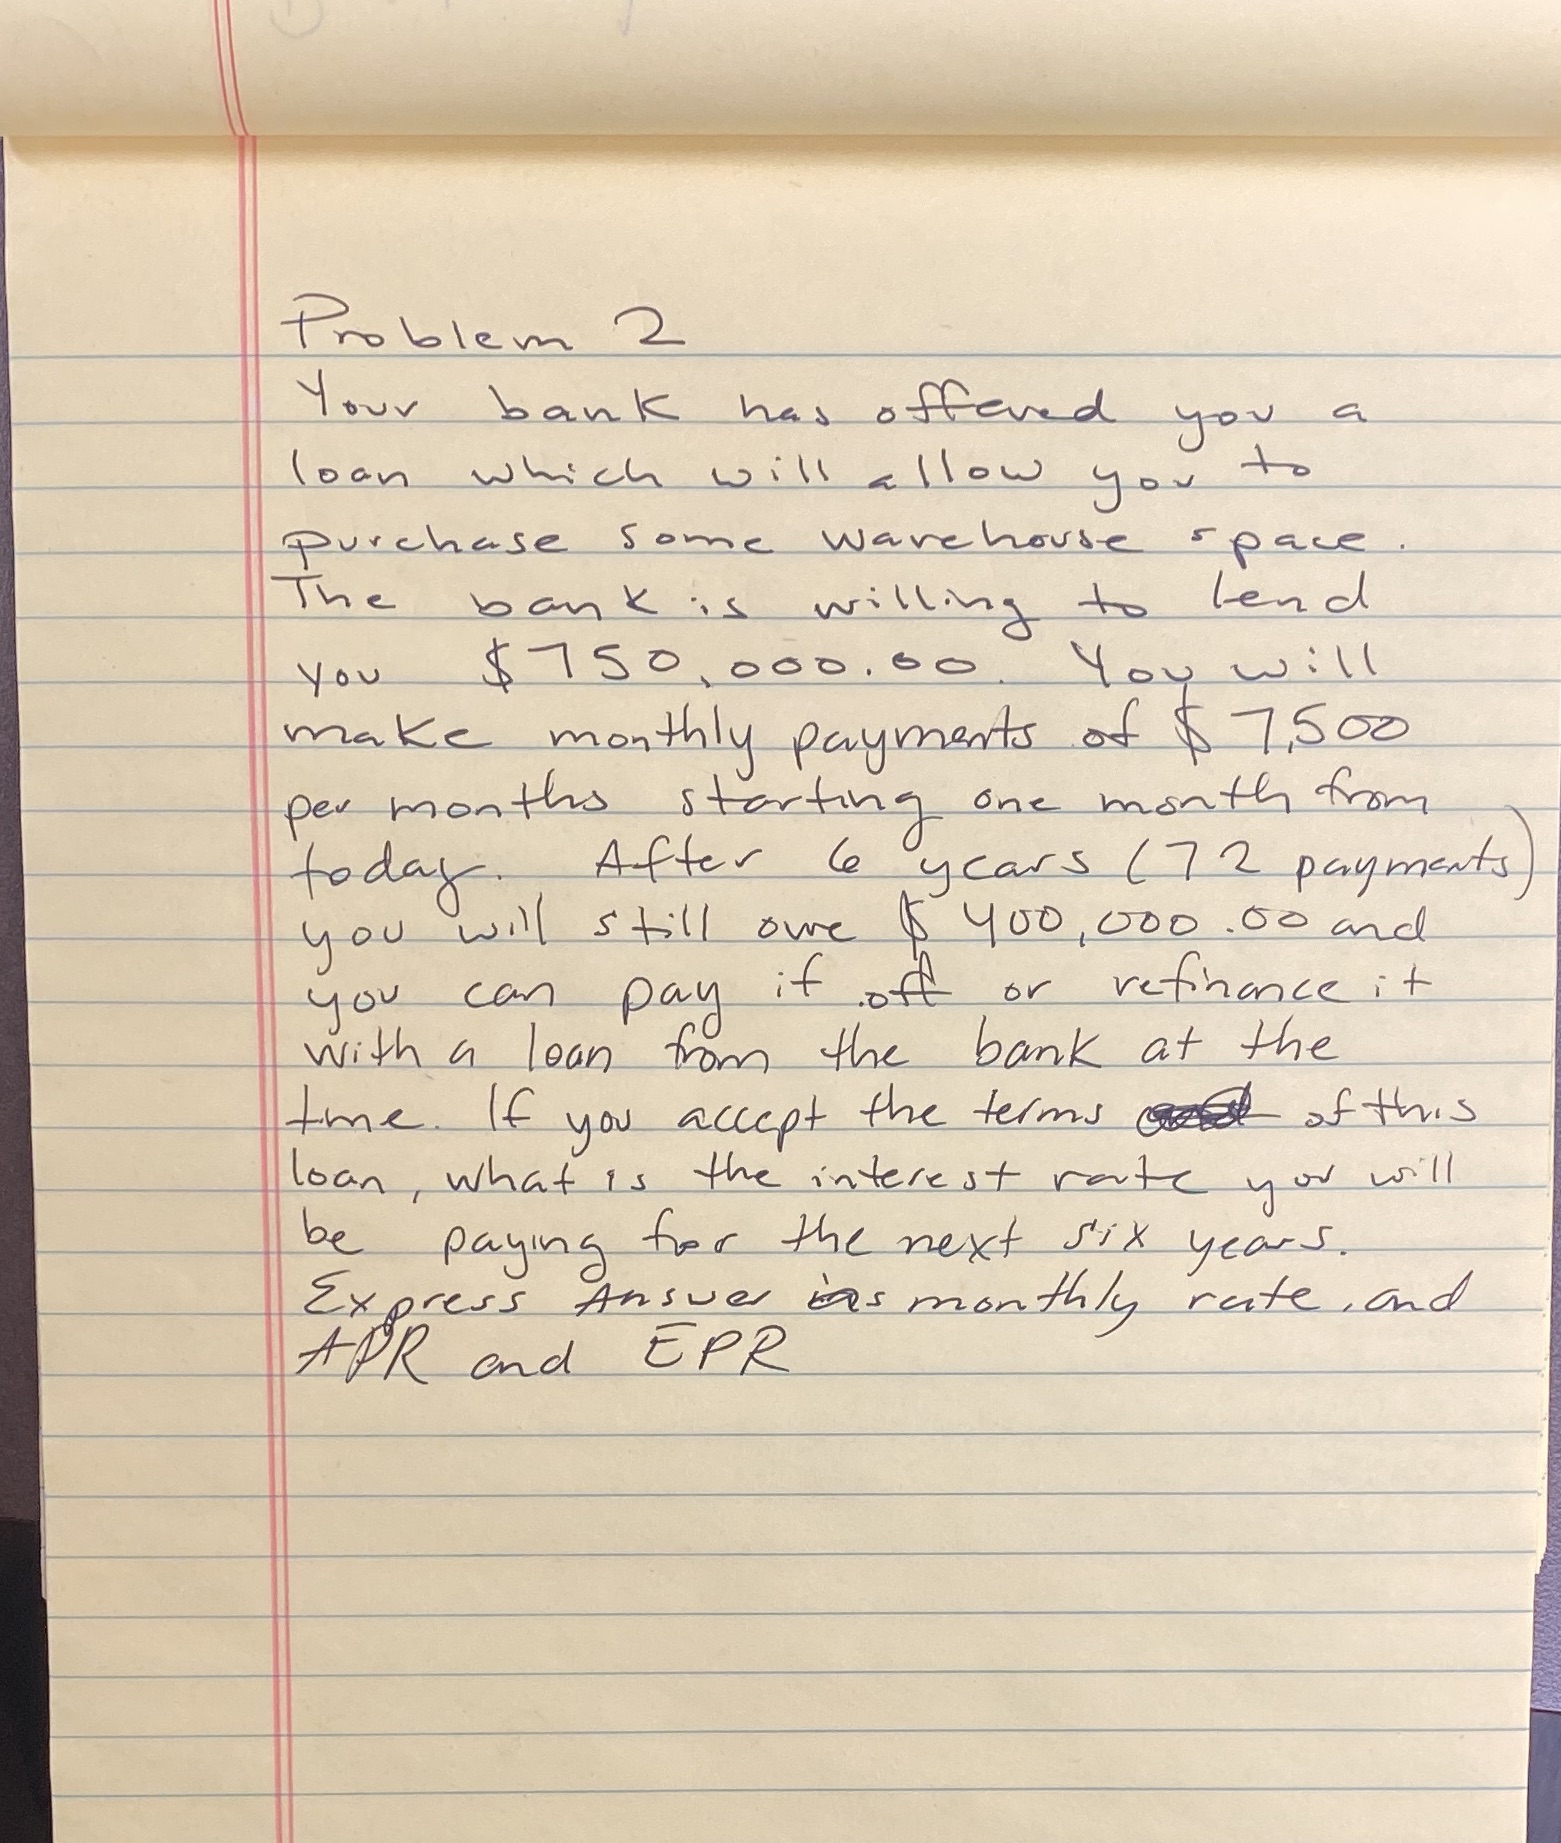 Problem 2
Your bank has offered you a
loan which will allow you to
purchase some warehouse space.
The bank is willing to lend
you $750,000.00. You will
make monthly payments of $7,500
per months starting one month from
today. After 6 years (72 payments)
you will still owe $400,000.00 and
you can pay it off or refinance it
with a loan from the bank at the
time. If you accept the terms of this
loan, what is the interest rate you will
be paying for the next six years.
Express Answer as monthly rate, and
APR and EPR